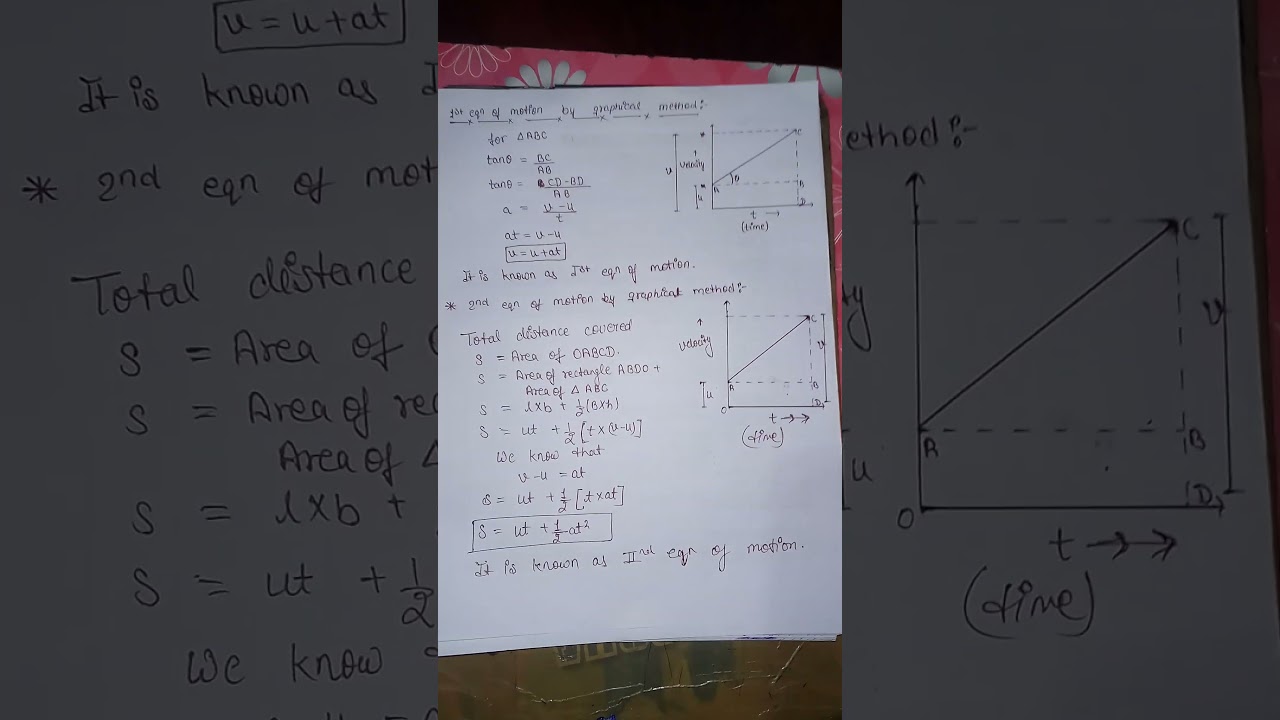 1st eqn of motion by graphical method:-
for ΔABC
tanθ = BC/AB
tanθ = CD-BD/AB
a = v-u/t
at = v-u
v = u+at
It is known as Ist eqn of motion.
v
velocity
u
A
θ
C
B
D
t →
(time)
* 2nd eqn of motion by graphical method:-
Total distance covered
S = Area of OABCD.
S = Area of rectangle ABDO +
Area of Δ ABC
S = l×b + 1/2(B×h)
S = ut + 1/2[t×(v-u)]
We know that
v-u = at
S = ut + 1/2[t×at]
S = ut + 1/2at²
It is known as IInd eqn of motion.
velocity
u
A
C
v
B
O
D
t →→
(time)
v = u+at
It is known as I
* 2nd eqn of mot
Total distance
S = Area of
S = Area of rec
Area of Δ
S = l×b +
S = ut + 1/2
We know
ethod:-
ty
C
v
A
B
u
O
D
t →→
(time)